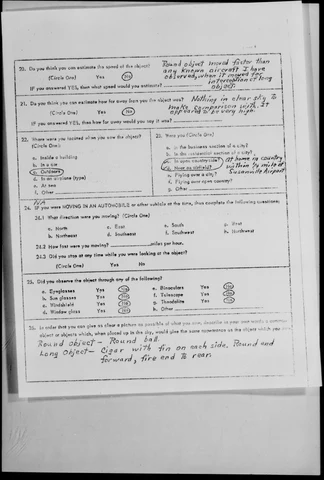 20. Do you think you can estimate the speed of the object?
(Circle One) Yes No
If you answered YES, then what speed would you estimate?
Round object moved faster than
any known aircraft I have
observed, when it moved for
interception of long
object.
21. Do you think you can estimate how far away from you the object was?
(Circle One) Yes No
If you answered YES, then how far away would you say it was?
Nothing in clear sky to
make comparison with. It
appeared to be very high.
22. Where were you located when you saw the object?
(Circle One):
a. Inside a building
b. In a car
c. Outdoors
d. In an airplane (type)
e. At sea
f. Other
23. Were you (Circle One)
a. In the business section of a city?
b. In the residential section of a city?
c. In open countryside?
d. Near an airfield?
e. Flying over a city?
f. Flying over open country?
g. Other
at home in country
within 1/2 mile of
Susanville Airport
NA
24. IF you were MOVING IN AN AUTOMOBILE or other vehicle at the time, then complete the following questions:
24.1 What direction were you moving? (Circle One)
a. North c. East e. South g. West
b. Northeast d. Southeast f. Southwest h. Northwest
24.2 How fast were you moving? miles per hour.
24.3 Did you stop at any time while you were looking at the object?
(Circle One) Yes No
25. Did you observe the object through any of the following?
a. Eyeglasses Yes No e. Binoculars Yes No
b. Sun glasses Yes No f. Telescope Yes No
c. Windshield Yes No g. Theodolite Yes No
d. Window glass Yes No h. Other
26. In order that you can give as clear a picture as possible of what you saw, describe in your own words a common
object or objects which, when placed up in the sky, would give the same appearance as the object which you
Round object - Round ball
Long Object - Cigar with fin on each side. Round end
forward, fire end to rear.